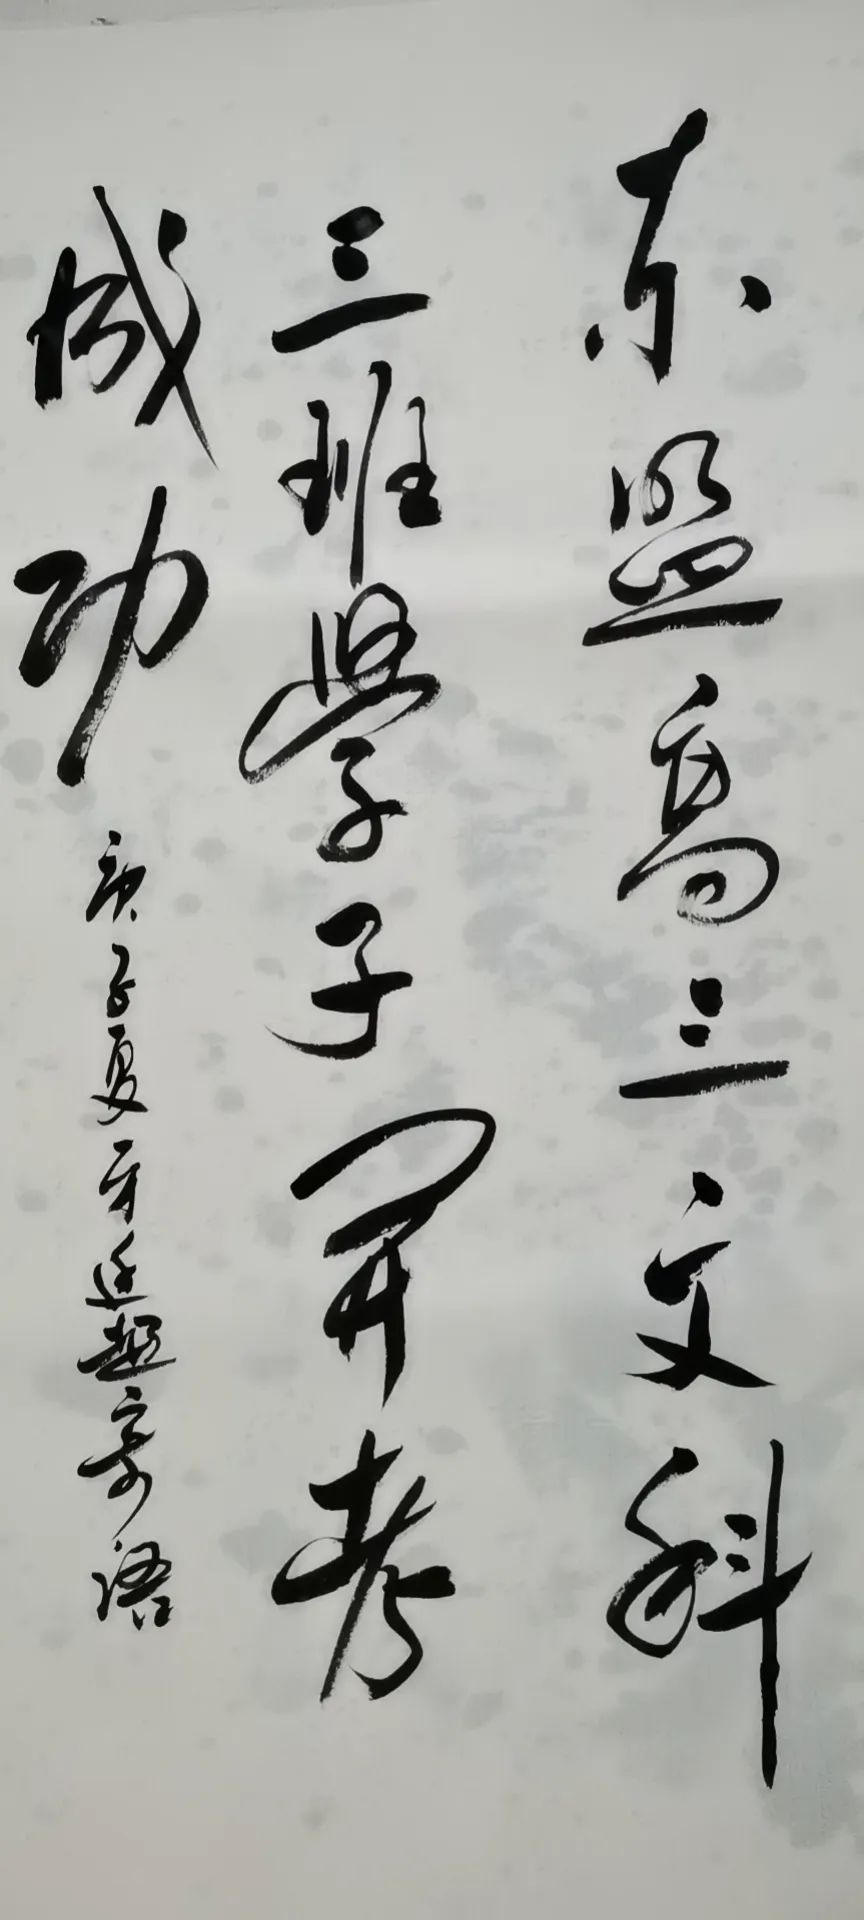 东盟高三文科
三班学子开考
成功
庚子夏 牙廷超寄语